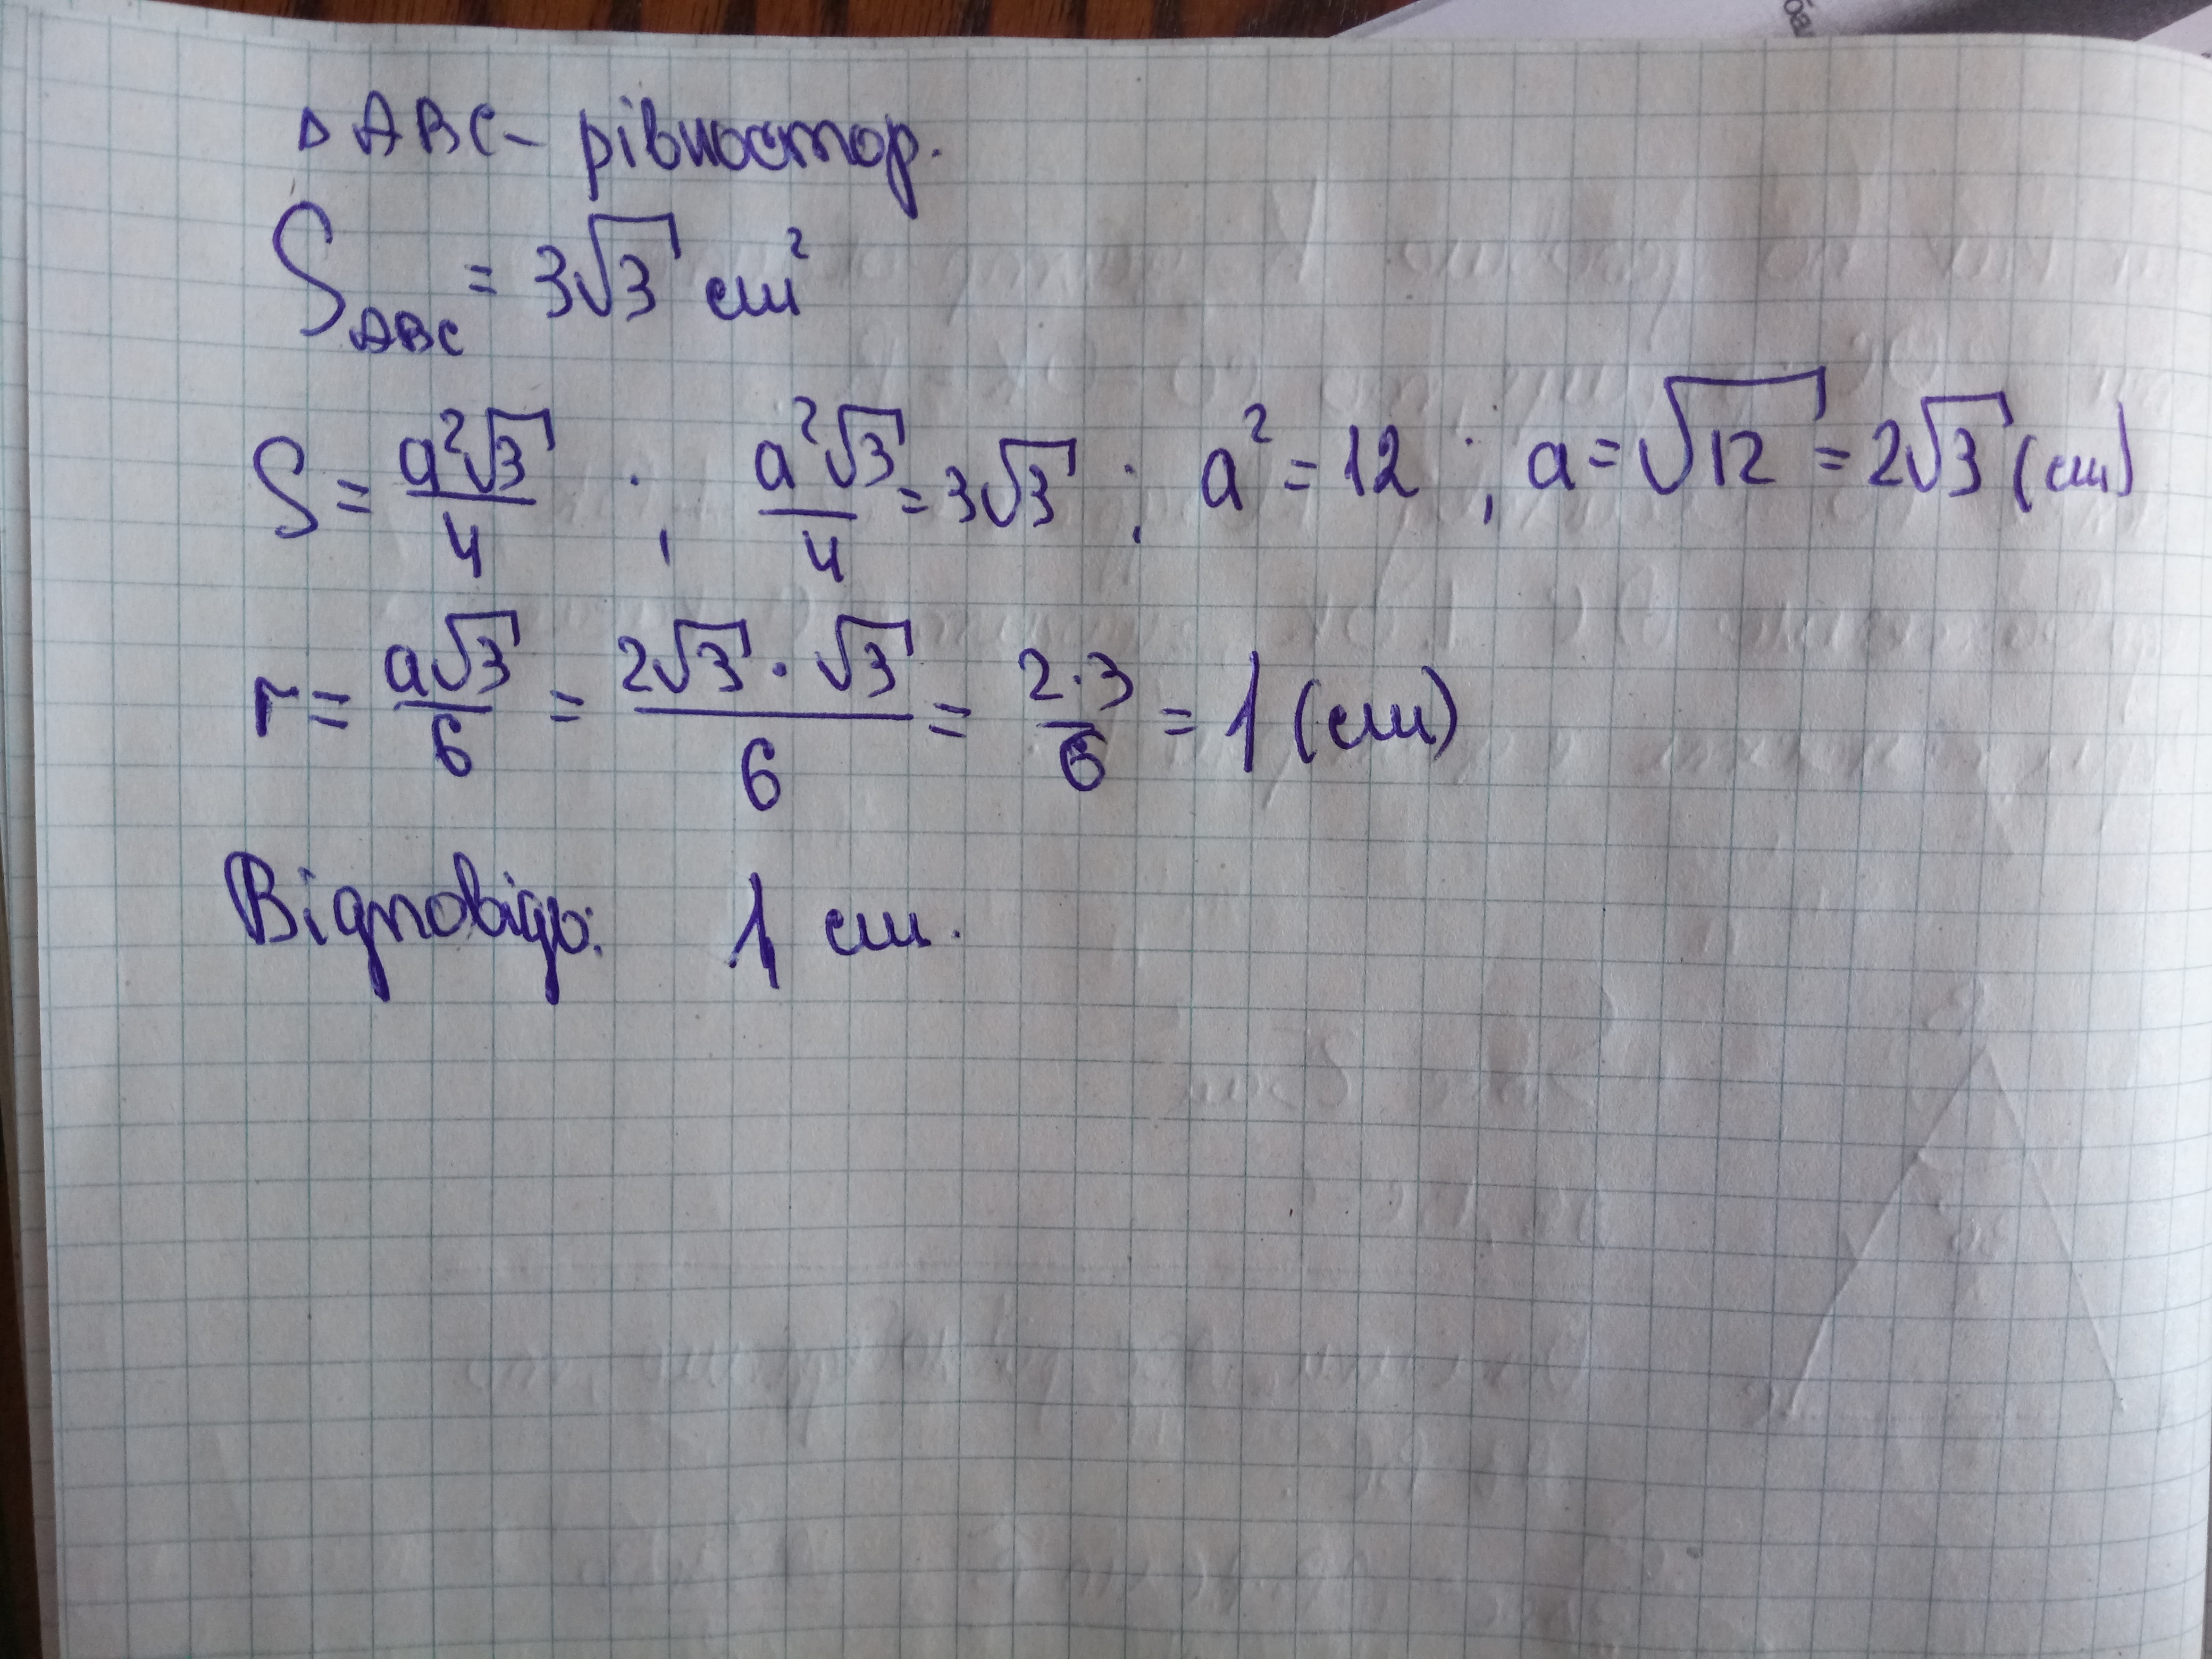 ба
△ ABC - рівностор.
S_ABC = 3√3 см²
S = a²√3/4 ; a²√3/4 = 3√3 ; a² = 12 ; a = √12 = 2√3 (см)
r = a√3/6 = 2√3·√3/6 = 2·3/6 = 1 (см)
Відповідь: 1 см.